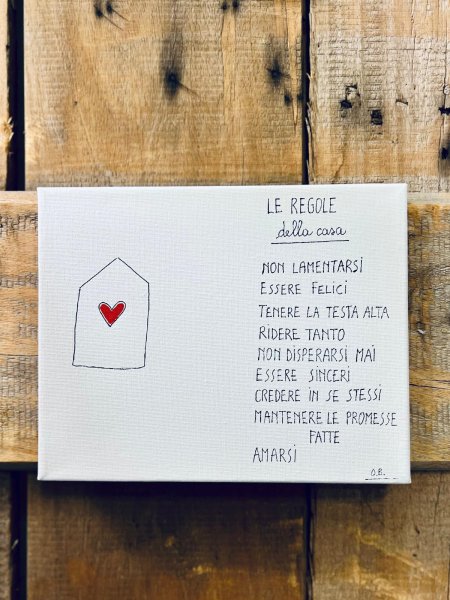 LE REGOLE
della casa
NON LAMENTARSI
ESSERE FELICI
TENERE LA TESTA ALTA
RIDERE TANTO
NON DISPERARSI MAI
ESSERE SINCERI
CREDERE IN SE STESSI
MANTENERE LE PROMESSE
FATTE
AMARSI
O.B.